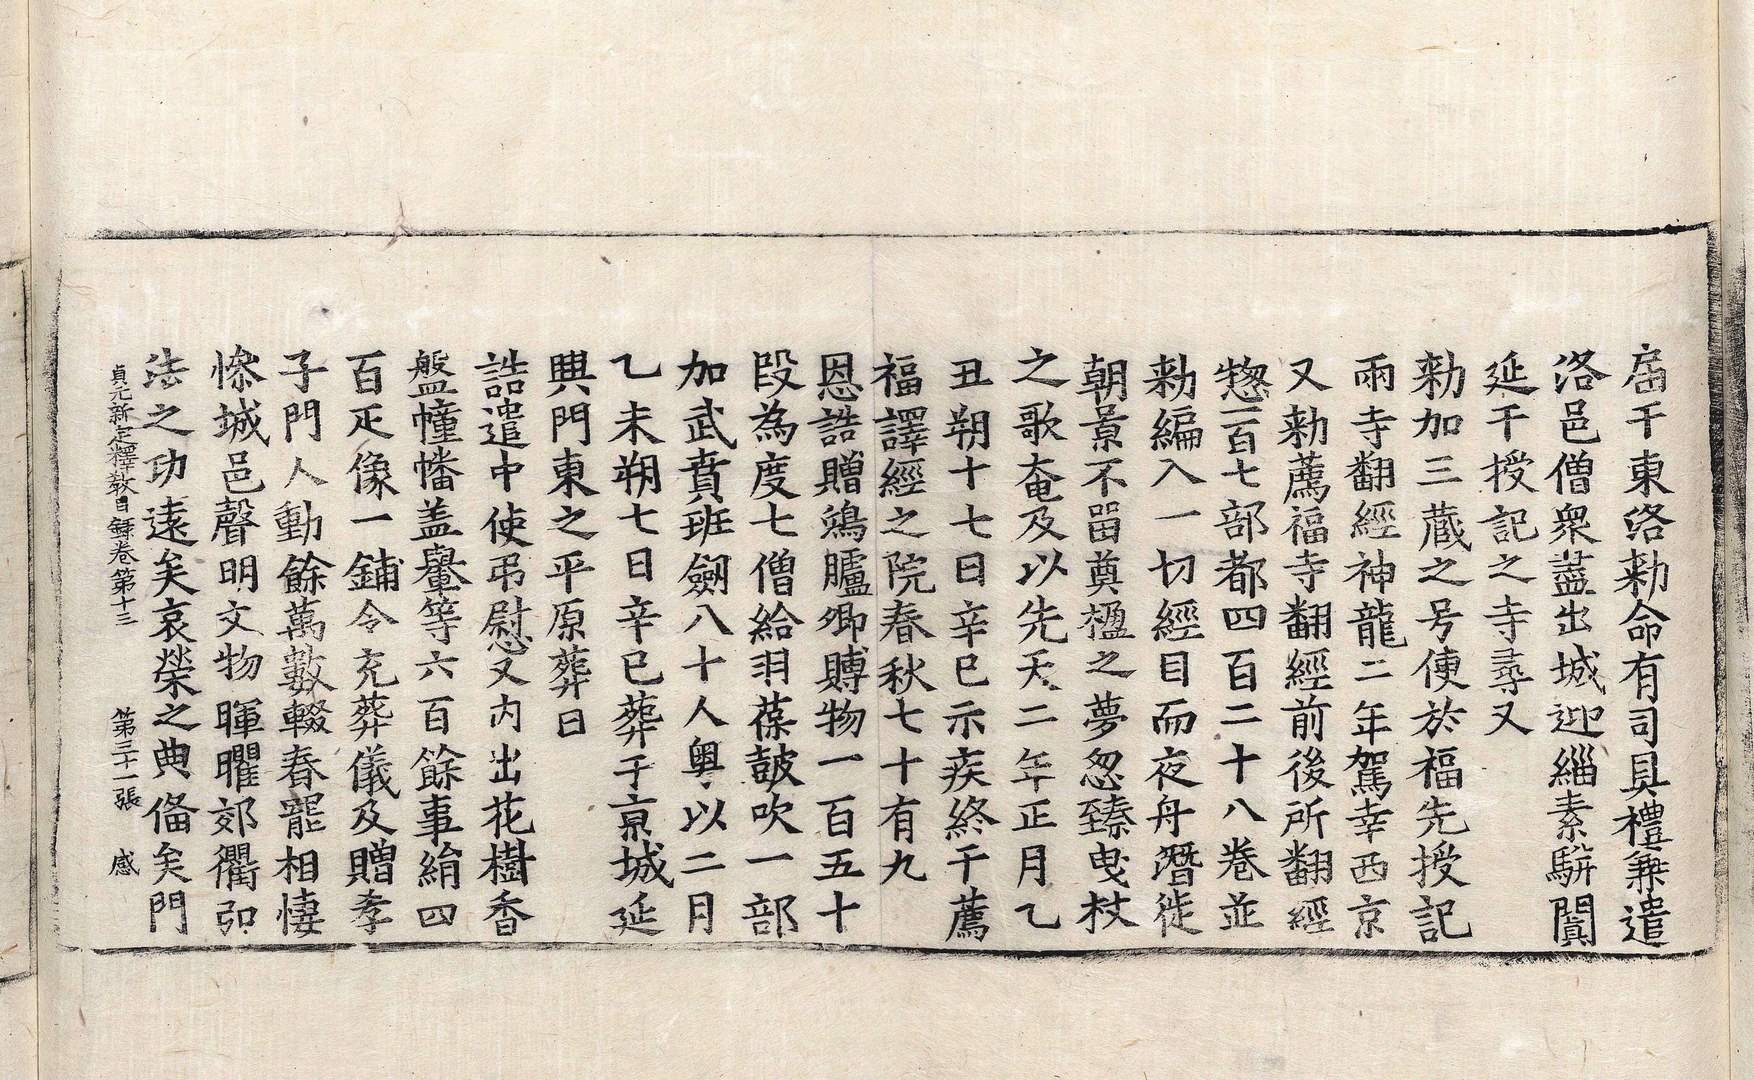 届于東洛勑命有司具禮兼遣
洛邑僧衆盡出城迎緇素騈闐
延于授記之寺尋又
勑加三藏之号便於福先授記
兩寺翻經神龍二年駕幸西京
又勑薦福寺翻經前後所翻經
惣一百七部都四百二十八卷並
勑編入一切經目而夜舟潛徙
朝景不留奠楹之夢忽臻曳杖
之歌奄及以先天二年正月乙
丑朔十七日辛巳示疾終于薦
福譯經之院春秋七十有九
恩誥贈鴻臚卿賻物一百五十
段為度七僧給羽葆鼓吹一部
加武賁班劒八十人粤以二月
乙未朔七日辛巳葬于京城延
興門東之平原葬日
誥遣中使弔慰又内出花樹香
盤幢幡盖轝等六百餘事絹四
百疋像一鋪令充葬儀及贈孝
子門人動餘萬數輟舂罷相悽
慘城邑聲明文物暉曜郊衢弘
法之功遠矣哀榮之典俻矣門
貞元新定釋教目錄卷第十三　第三十一張　感